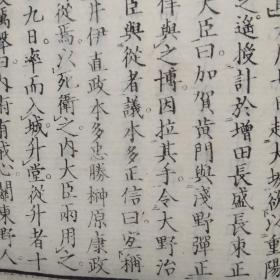 之遙授計於增田長盛長束正
大臣曰加賀黄門與淺野彈正
祥與之博因拉其手令大野治
臣與從者議本多正信曰宜稱
井伊直政本多忠勝榊原康政
從焉以死衛之內大臣兩用之
九日率而入城升堂從升者十
關東野人